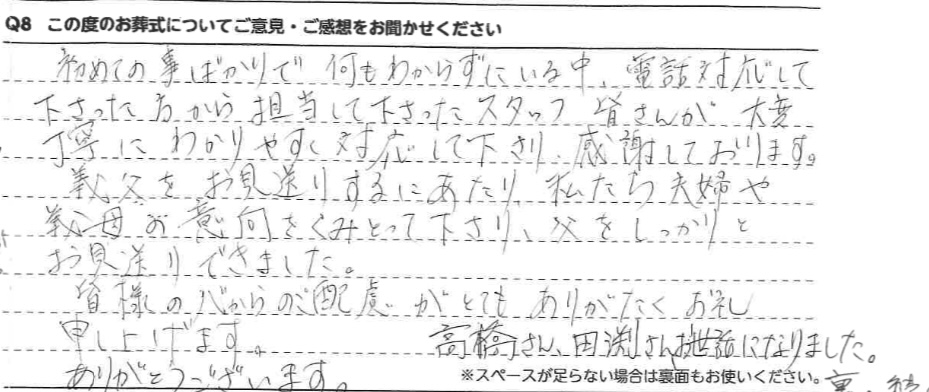 Q8 この度のお葬式についてご意見・ご感想をお聞かせください
初めての事ばかりで 何もわからずにいる中、電話対応して
下さった方から担当して下さったスタッフ皆さんが 大変
丁寧に わかりやすく対応して下さり、感謝しております。
義父を お見送りするにあたり、私たち夫婦や
義母の意向をくみとって下さり、父をしっかりと
お見送りできました。
皆様の心からのご配慮がとても ありがたく お礼
申し上げます。
高橋さん、田渕さんお世話になりました。
ありがとうございます。
※スペースが足らない場合は裏面もお使いください。